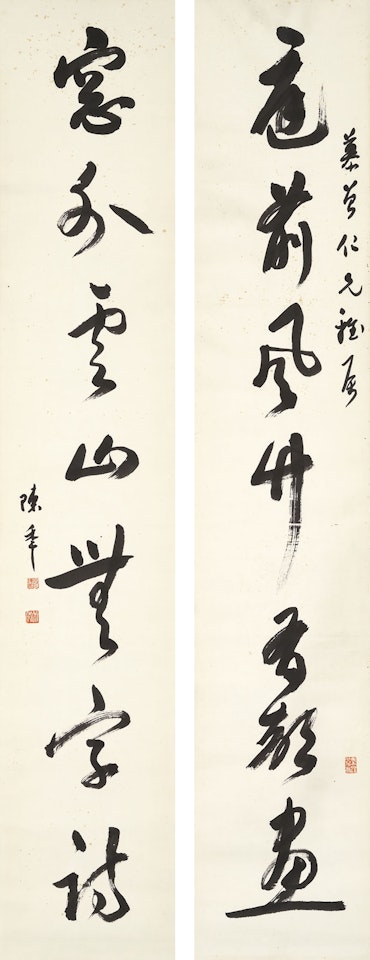 慕曾仁兄雅屬
庭前風竹有聲畫
窗外雲山無字詩
陳年